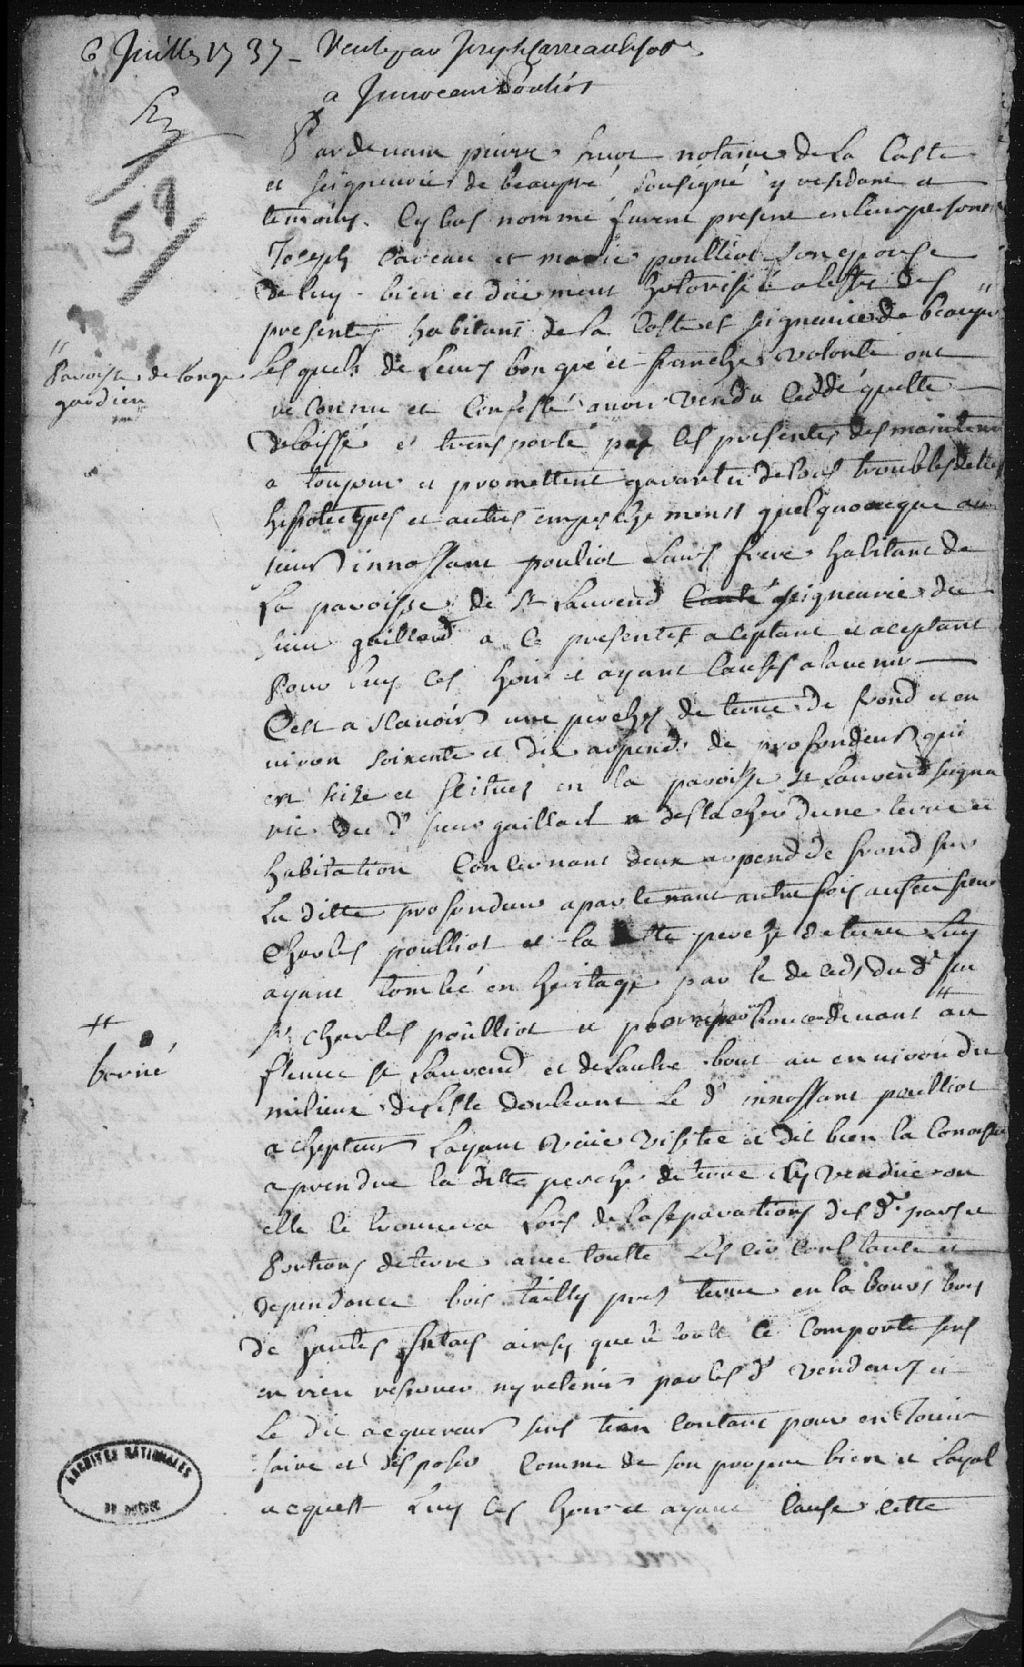 6 Juillet 1737 - Vente par Joseph Carreau
a Innocent Pouliot
59
Pardevant pierre huot notaire de La Coste
et seigneurie de beaupré sousigné y residant et
temoins Cy bas nommé furent present en leurs personnes
Joseph Careau et marie poulliot son epouse
de luy bien et düement hotorisé a leffet des
presentes habitant de la Coste et seigneurie de beaupré
Paroisse de Lange
gardien
Lesquels de Leurs bon gré et franche volonté ont
reConnu et Confessé avoir vendu Ceddé quitté
delaissé et transporté par les presentes des maintenant
a toujour et promettent garantir de tous troubles dettes
hipotecques et autres empeschements quelquonque au
sieur innossant pouliot Leurs frere habitant de
La paroisse de St Laurend seigneurie du
sieur gaillard a Ce present et aCeptant et aCeptant
Pour luy Ces hoirs et ayant Causes alavenir
Cest a sCavoir une perche de terre de frond et en
viron soixente et dix arpends de profondeur qui
est size et scituée en la paroisse St Laurend seigneu
rie du dt sieur gaillard a destacher dune terre et
habitation Contenant deux arpend de frond sur
La ditte profondeur apartenant autre fois au feu sieur
Charles poulliot et la ditte perche de terre Luy
ayant tombé en heritage par le deceds du dt feu
sr Charles poulliot et au
++
borné
fleuve St Laurend et de Lautre bout au environ du
milieux de Lisle dorleant Le dt innossant poulliot
achepteur Layant vüie visitée et dit bien la Conoistre
aprendre la ditte perche de terre Cy vendüe ou
elle se trouvera Lors de La separations des dts parts et
Portions de terre avec toutte Ses CirConstance et
dependance bois tailly prés terre en labours bois
de hautes futaes ainsy que le tout Ce Comporte sens
en rien reserver ny retenir par les dts vendeurs et
Le dit acquereur sens tien Contant pour en Jouir
faire et disposer Comme de son propre bien et Loyal
acquest Luy Ces hoir et ayant Cause Cette
ARCHIVES NATIONALES